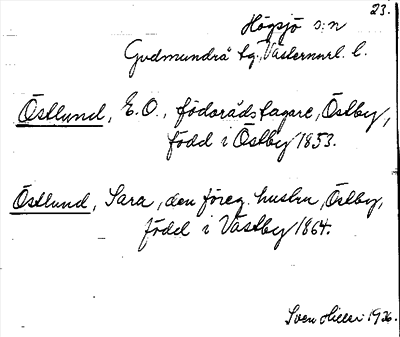 23.
Högsjö s:n
Gudmundrå tg. Västernorrl. l.
Östlund, E.O., födorådstagare, Östby,
född i Östby 1853.
Östlund, Sara, den föreg. hustru, Östby,
född i Västby 1864.
Sven 1936.